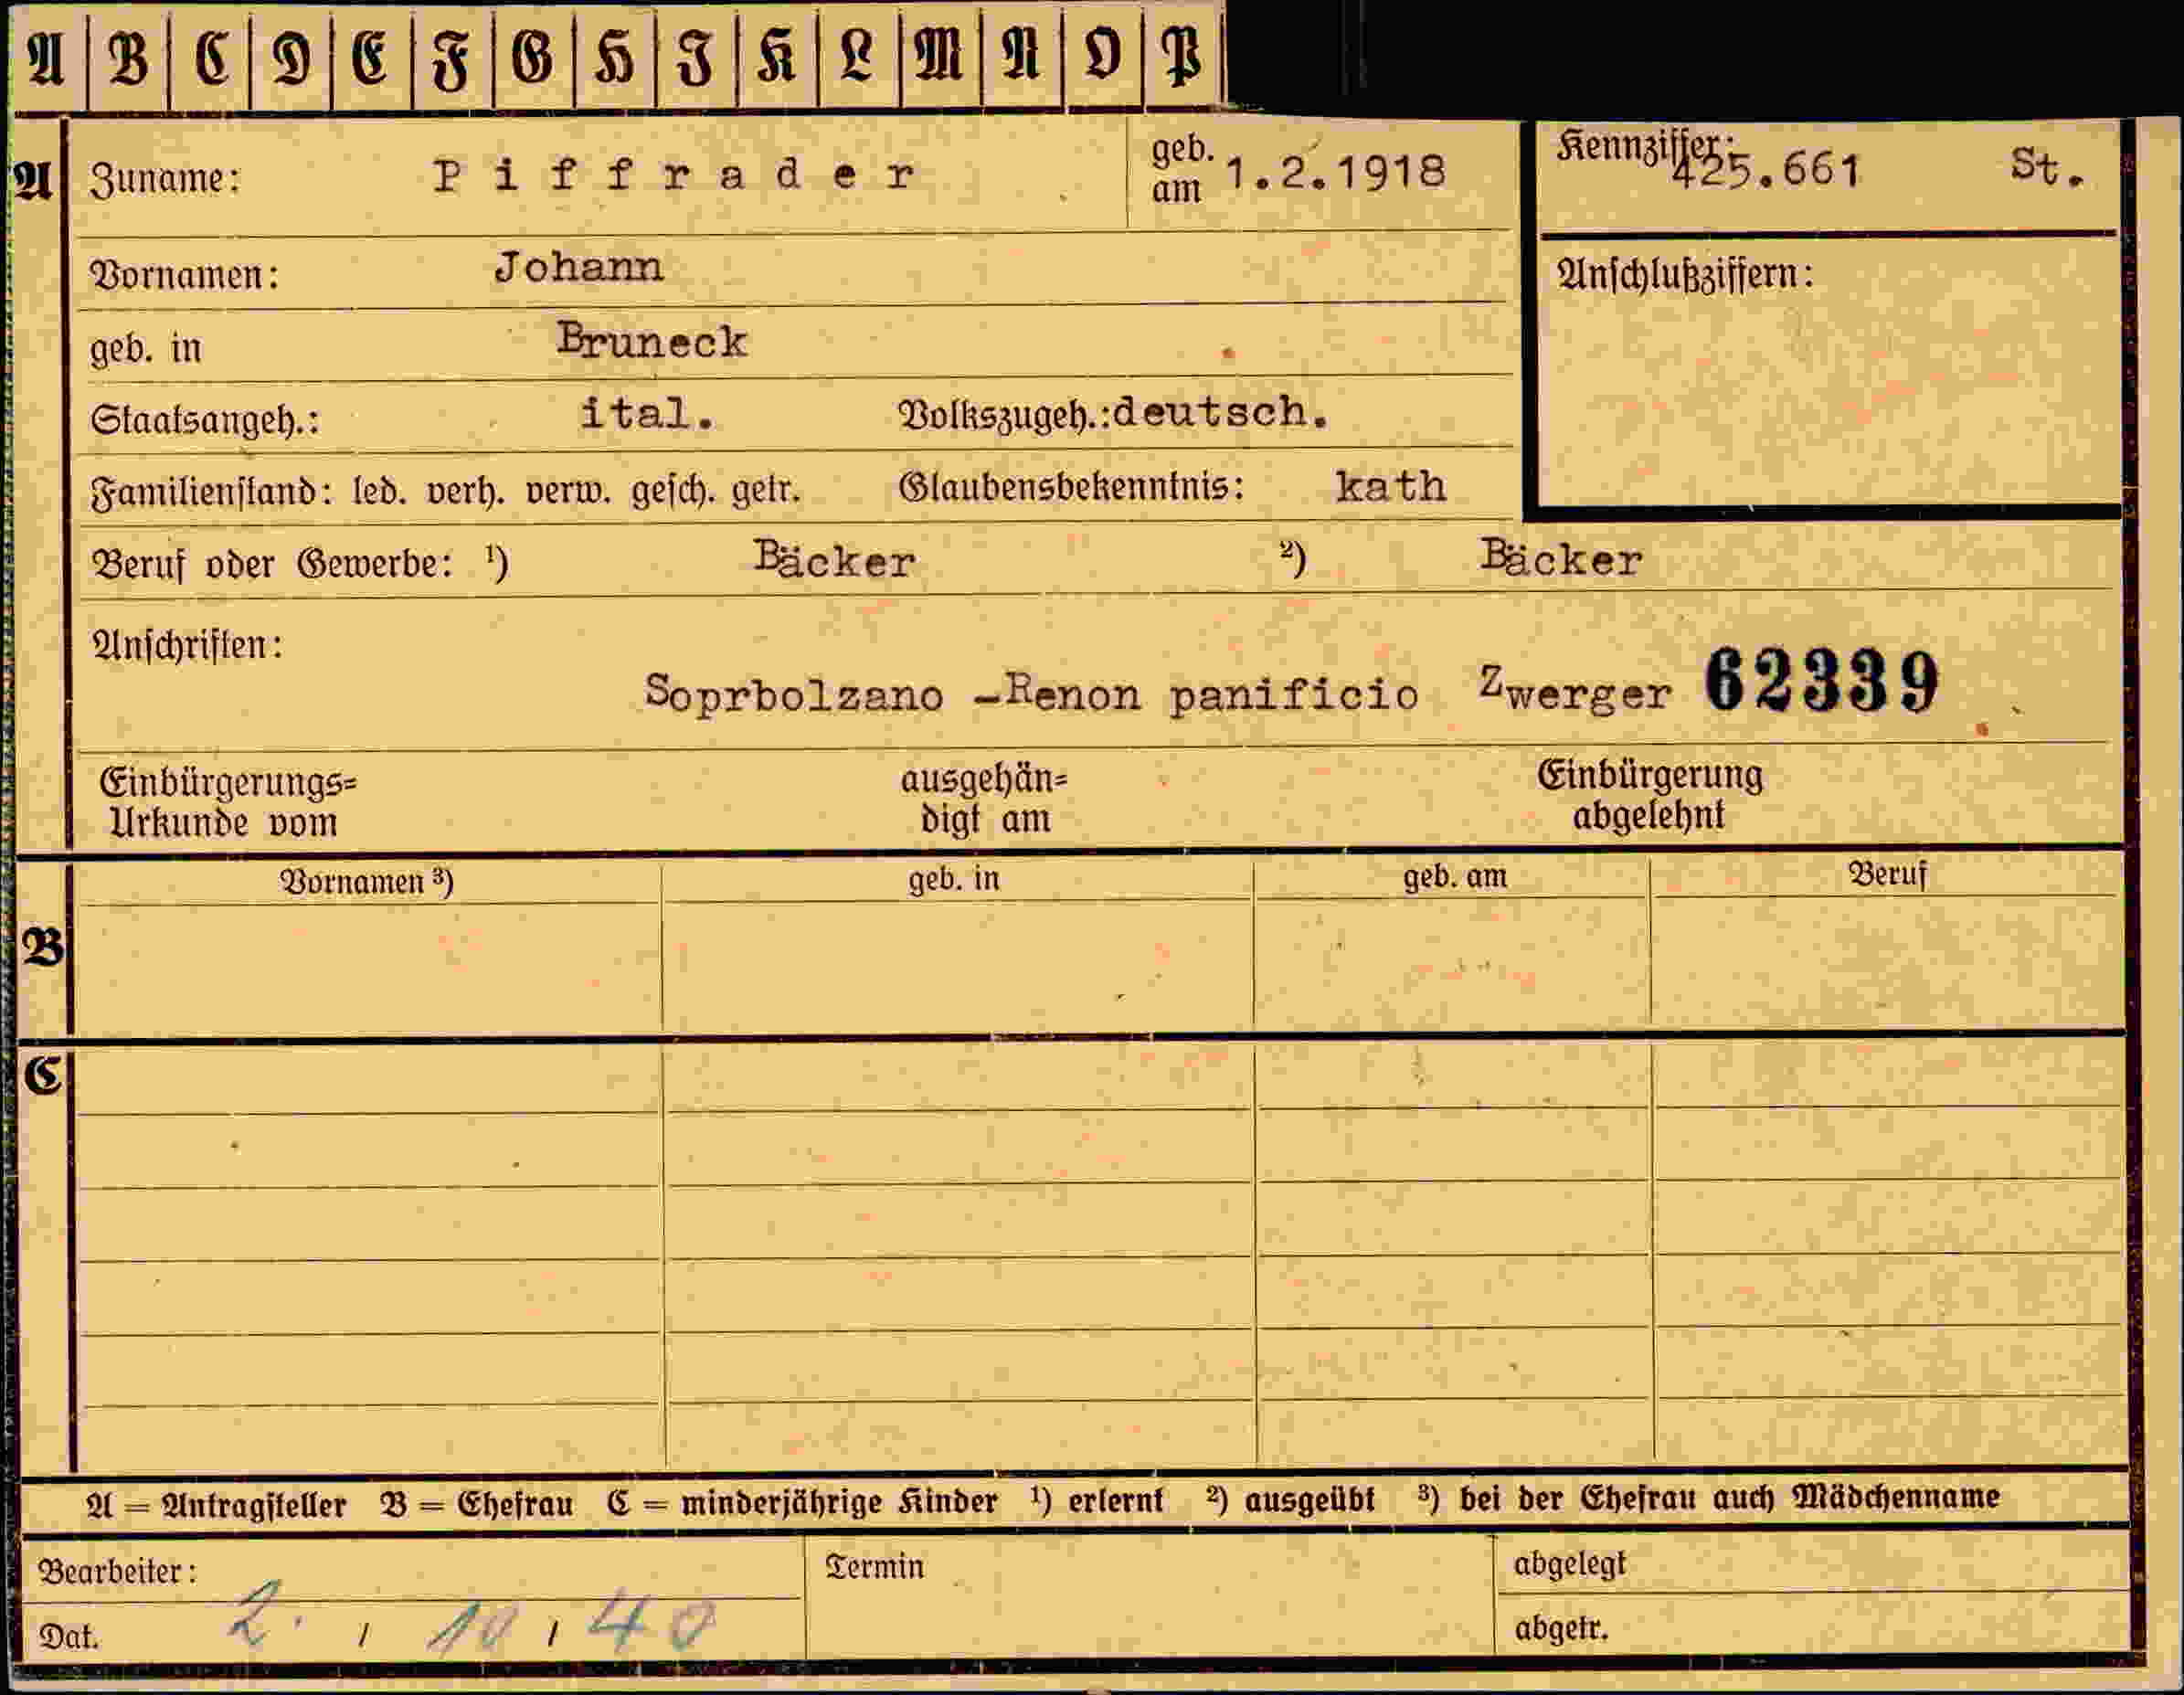 A B C D E F G H I K L M N O P
A Zuname: Piffrader geb. am 1.2.1918 Kennziffer: 425.661 St.
Vornamen: Johann Anschlußziffern:
geb. in Bruneck
Staatsangeh.: ital. Volkszugeh.: deutsch.
Familienstand: led. verh. verw. gesch. getr. Glaubensbekenntnis: kath
Beruf oder Gewerbe: ¹) Bäcker ²) Bäcker
Anschriften:
Soprbolzano -Renon panificio Zwerger 62339
Einbürgerungs= ausgehän= Einbürgerung
Urkunde vom digt am abgelehnt
Vornamen ³) geb. in geb. am Beruf
B
C
A = Antragsteller B = Ehefrau C = minderjährige Kinder ¹) erlernt ²) ausgeübt ³) bei der Ehefrau auch Mädchenname
Bearbeiter: Termin abgelegt
Dat. 2. / 10 / 40 abgetr.